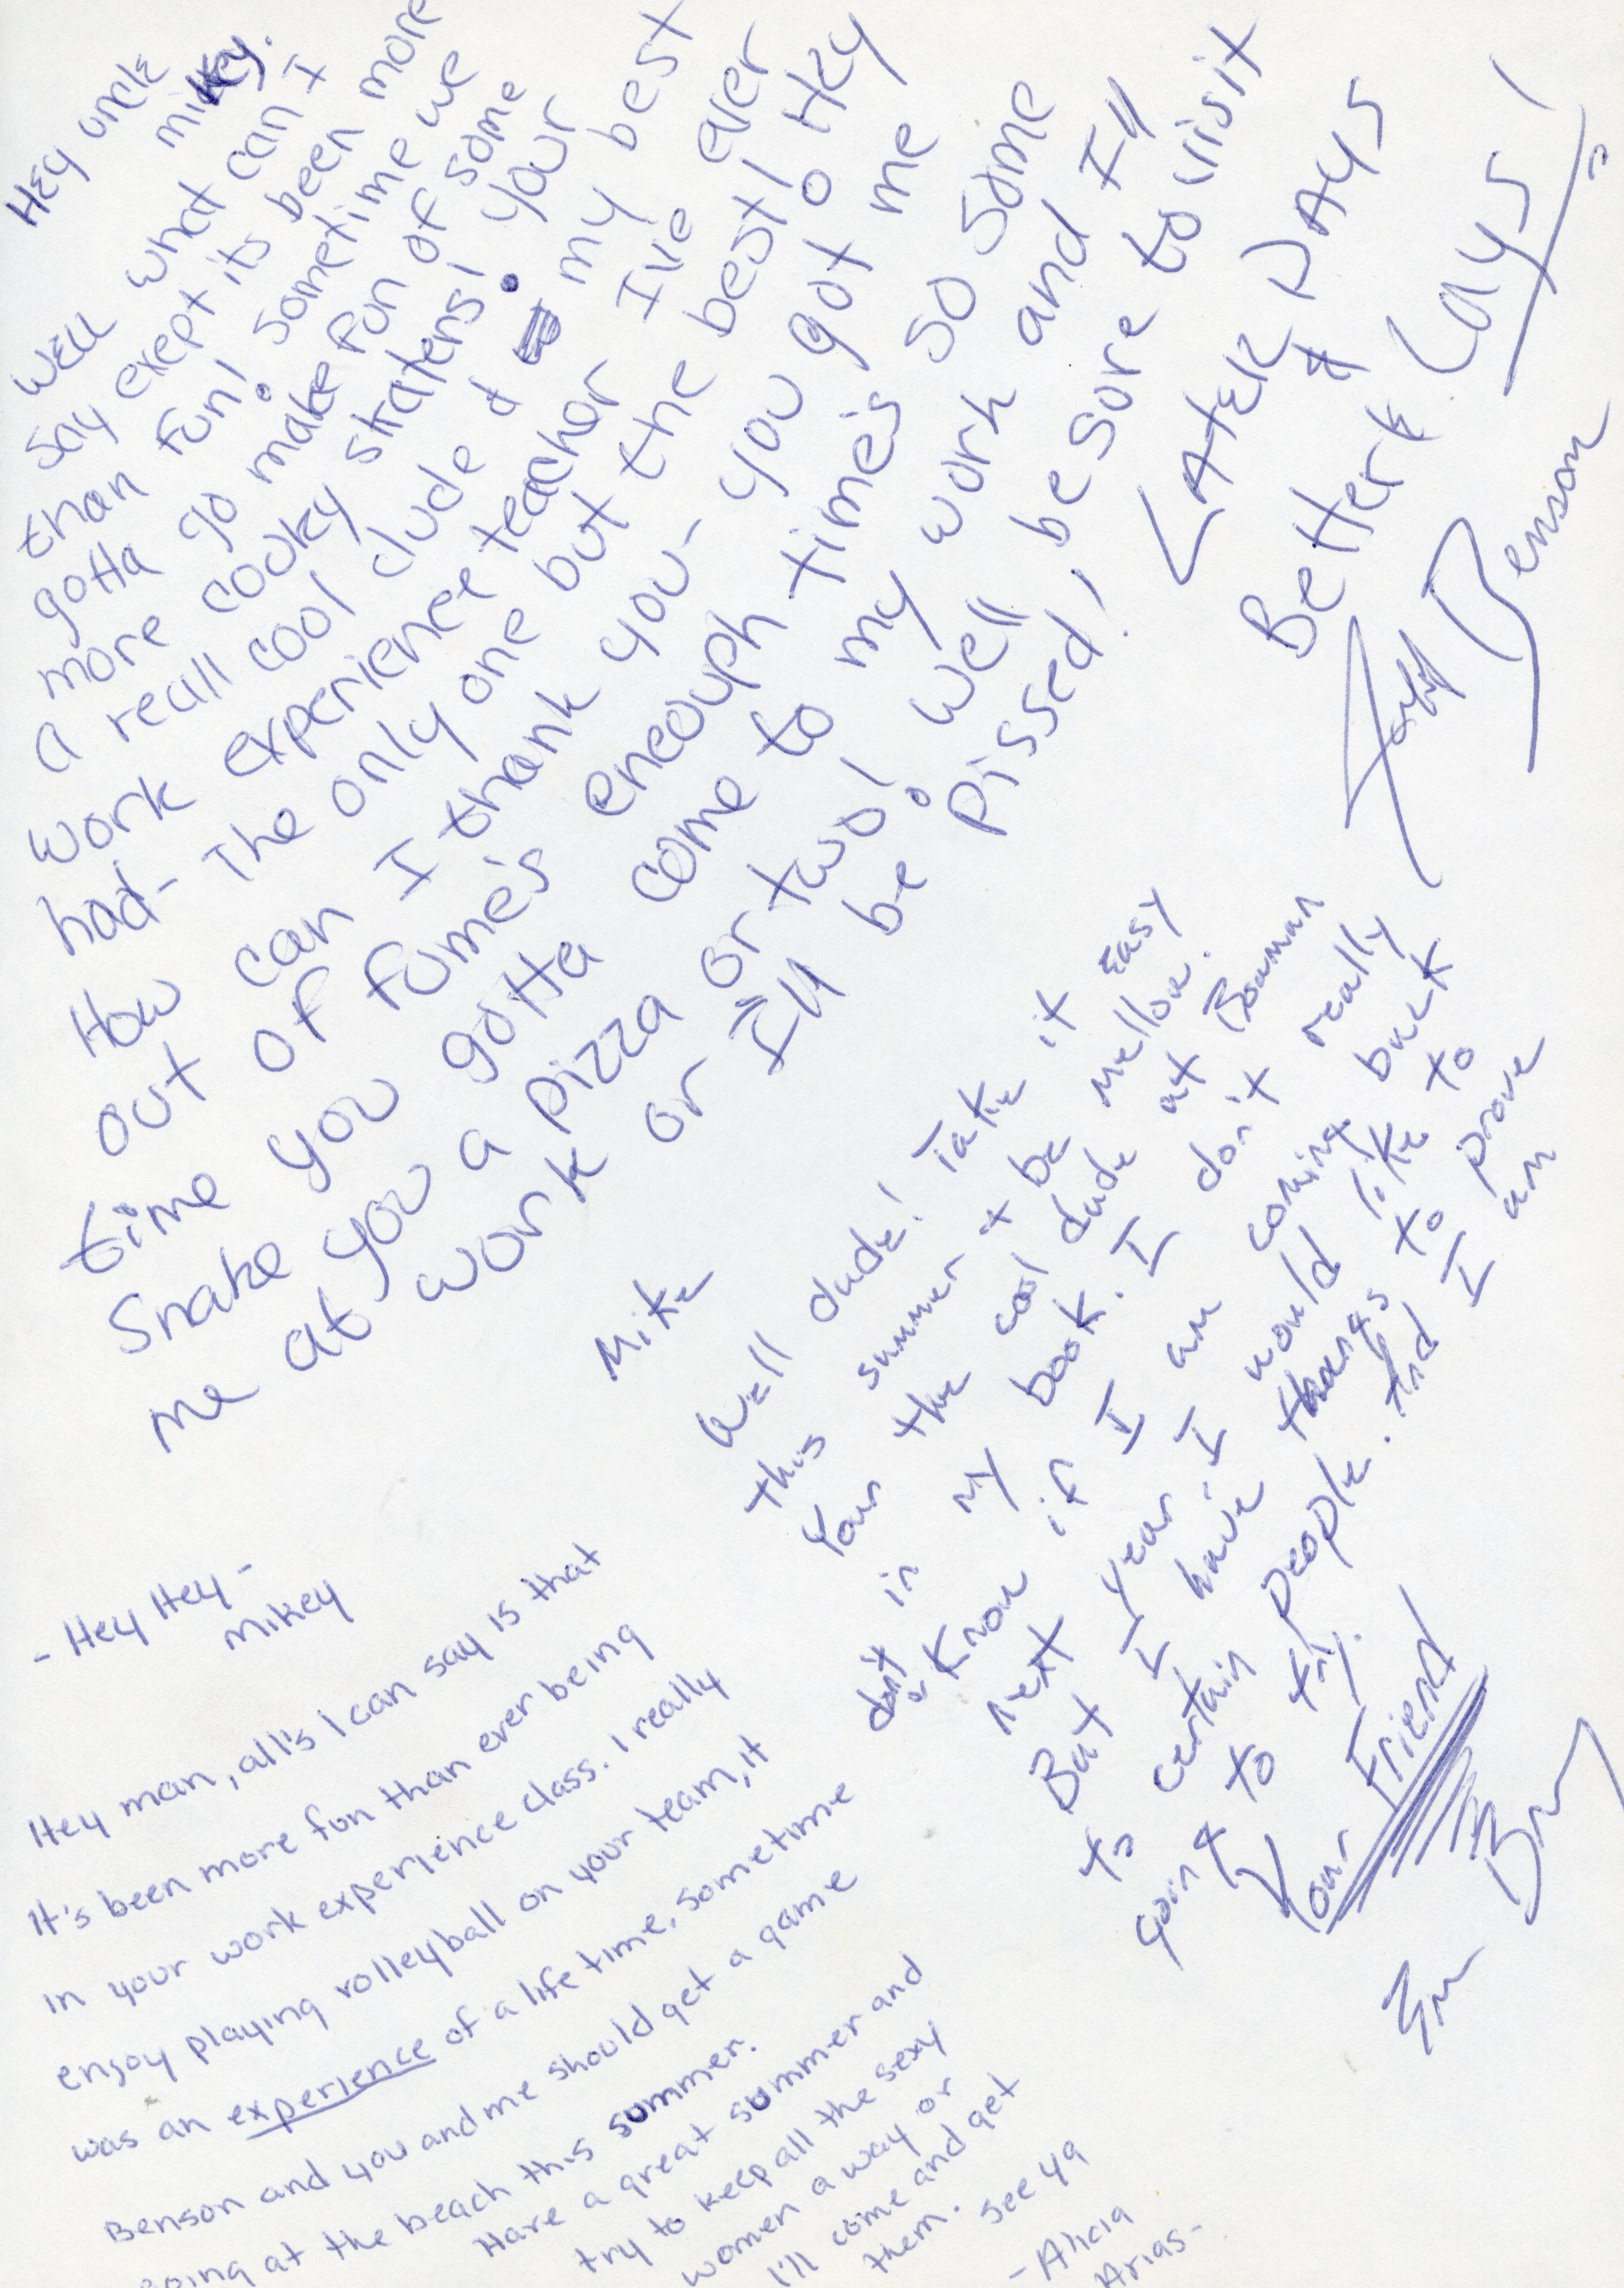 Hey uncle
mikey.
Well what can I
say exept its been more
than fun! Sometime we
gotta go make fun of some
more cooky skaters! your
a reall cool dude & my best
work experience teacher I've ever
had - The only one but the best! o Hey
How can I thank you - you got me
out of fume's eneouph time's so some
time you gotta come to my work and I'll
snake you a pizza or two! Well be sure to visit
me at work or I'll be pissed!
LAtER DAYS
&
BetteR Lays!
Benson
Mike
Well dude! Take it Easy
this summer + be mellow.
Your the cool dude at Bowman
in my book. I don't really
don't know if I am coming back
next year. I would like to
But I have things to prove
to certain people. And I am
goin to try.
&
Your Friend
- Hey Hey -
mikey
Hey man, all's I can say is that
It's been more fun than ever being
in your work experience class. I really
enjoy playing volleyball on your team, it
was an experience of a life time. Sometime
Benson and you and me should get a game
going at the beach this summer.
Have a great summer and
try to keep all the sexy
women a way or
I'll come and get
them. See ya
- Alicia
Arias -